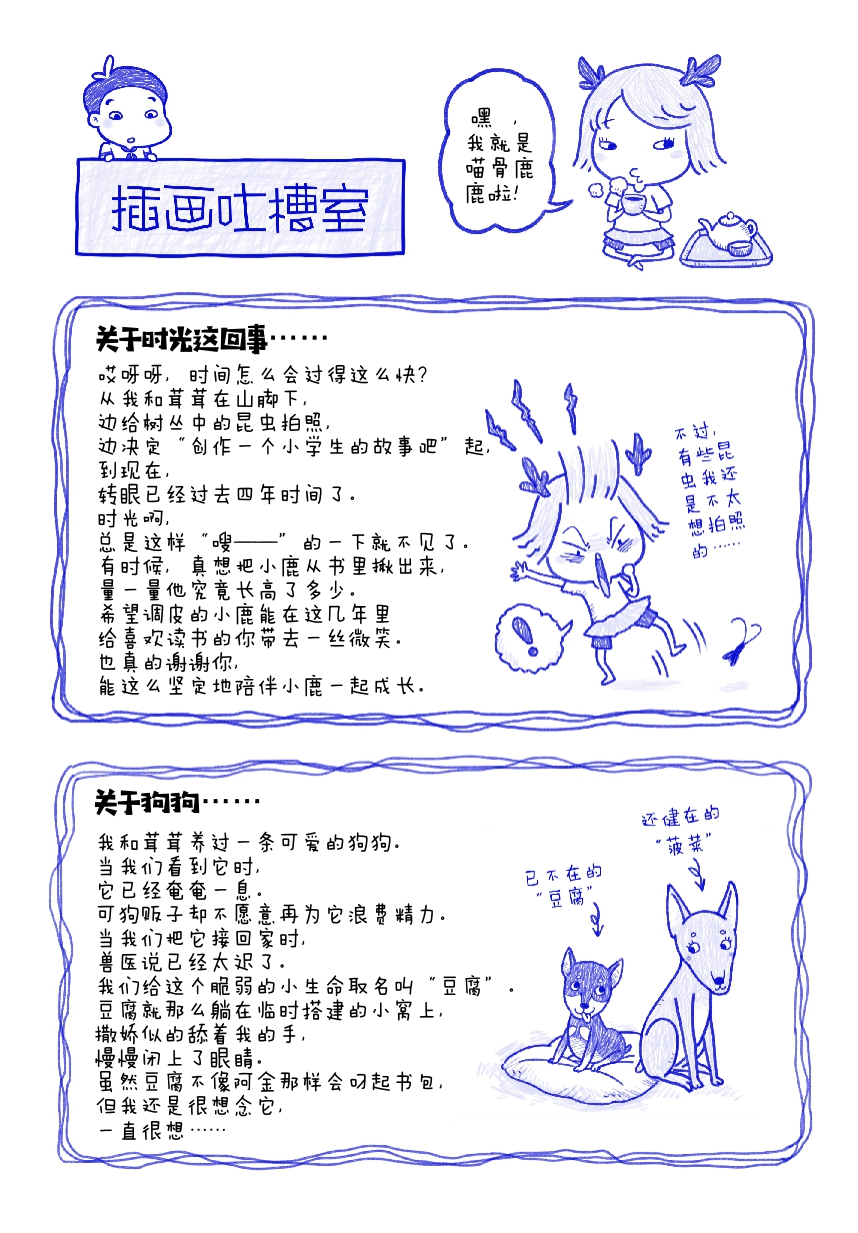 插画吐槽室
嘿，
我就是
喵骨鹿
鹿啦！
关于时光这回事……
哎呀呀，时间怎么会过得这么快？
从我和茸茸在山脚下，
边给树丛中的昆虫拍照，
边决定“创作一个小学生的故事吧”起，
到现在，
转眼已经过去四年时间了。
时光啊，
总是这样“嗖——”的一下就不见了。
有时候，真想把小鹿从书里揪出来，
量一量他究竟长高了多少。
希望调皮的小鹿能在这几年里
给喜欢读书的你带去一丝微笑。
也真的谢谢你，
能这么坚定地陪伴小鹿一起成长。
不过，
有些昆
虫我还
是不太
想拍照
的……
关于狗狗……
我和茸茸养过一条可爱的狗狗。
当我们看到它时，
它已经奄奄一息。
可狗贩子却不愿意再为它浪费精力。
当我们把它接回家时，
兽医说已经太迟了。
我们给这个脆弱的小生命取名叫“豆腐”。
豆腐就那么躺在临时搭建的小窝上，
撒娇似的舔着我的手，
慢慢闭上了眼睛。
虽然豆腐不像阿金那样会叼起书包，
但我还是很想念它，
一直很想……
已不在的
“豆腐”
还健在的
“菠菜”